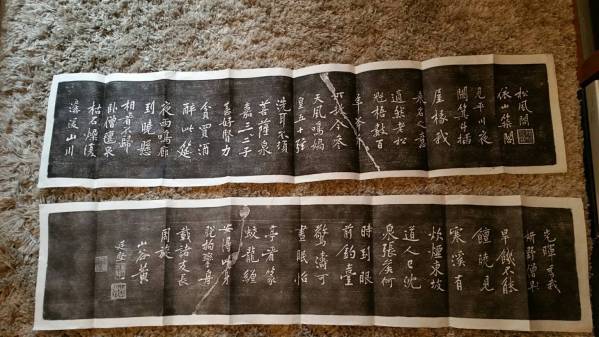 松風閣
依山築閣
見平川夜
闌箕斗插
屋椽我
來名之意
適然老松
魁梧數百
年斧斤
所赦今參
天風鳴媧
皇五十弦
洗耳不須
菩薩泉
嘉二三子
甚好賢力
貧買酒
醉此筵
夜雨鳴廊
到曉懸
相看不歸
臥僧氈泉
枯石燥復
潺湲山川
光暉為我
妍野僧
旱饑不能
饘曉見
寒溪有
炊煙東坡
道人已沈
泉張侯何
時到眼
前釣臺
驚濤可
晝眠怡
亭看篆
蛟龍纏
安得此身
脫拘攣舟
載諸友長
周旋
山谷黃
庭堅